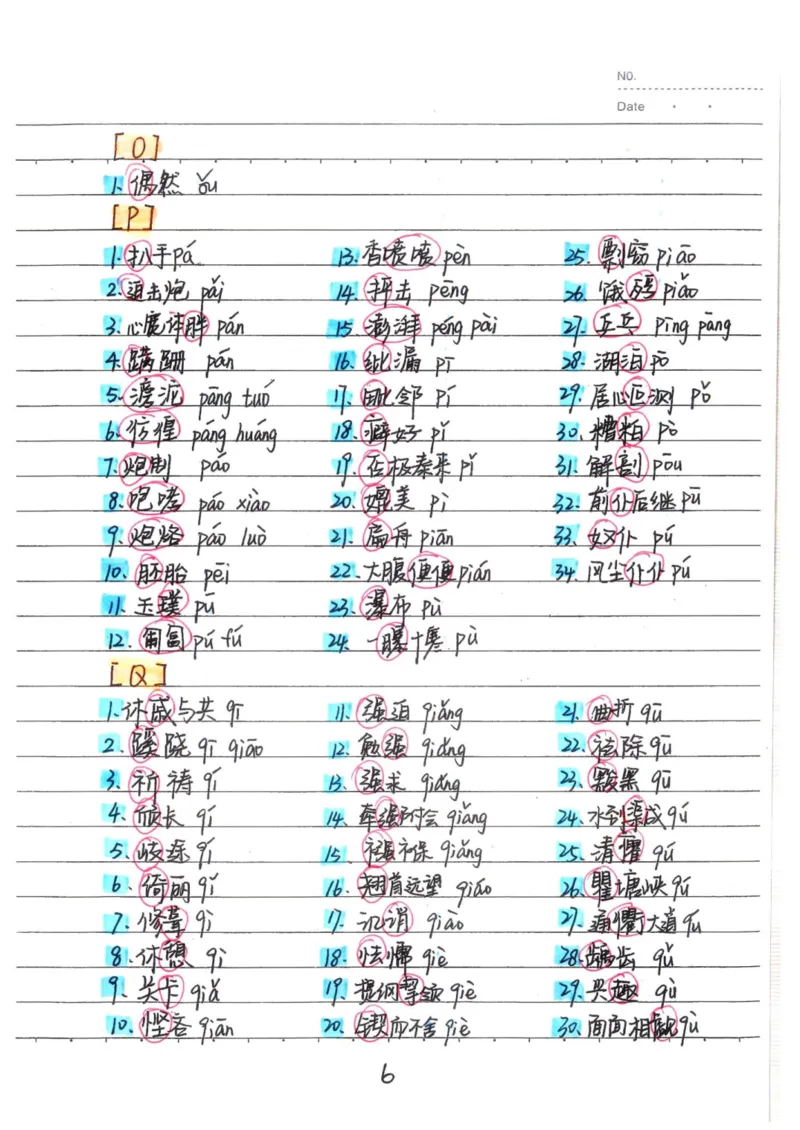 No.
Date
[O]
1. 偶然 ǒu
[P]
1. 扒手 pá
2. 迫击炮 pǎi
3. 心广体胖 pán
4. 蹒跚 pán
5. 滂沱 pāng tuó
6. 彷徨 páng huáng
7. 炮制 páo
8. 咆哮 páo xiào
9. 炮烙 páo luò
10. 胚胎 pēi
11. 玉璞 pú
12. 匍匐 pú fú
13. 香喷喷 pèn
14. 抨击 pēng
15. 澎湃 péng pài
16. 纰漏 pī
17. 毗邻 pí
18. 癖好 pǐ
19. 否极泰来 pǐ
20. 媲美 pì
21. 扁舟 piān
22. 大腹便便 pián
23. 瀑布 pù
24. 一曝十寒 pù
25. 剽窃 piāo
26. 饿殍 piǎo
27. 乒乓 pīng pāng
28. 湖泊 pō
29. 居心叵测 pǒ
30. 糟粕 pò
31. 解剖 pōu
32. 前仆后继 pū
33. 奴仆 pú
34. 风尘仆仆 pú
[Q]
1. 休戚与共 qī
2. 蹊跷 qī qiāo
3. 祈祷 qí
4. 颀长 qí
5. 歧途 qí
6. 绮丽 qǐ
7. 修葺 qì
8. 休憩 qì
9. 关卡 qiǎ
10. 悭吝 qiān
11. 强迫 qiǎng
12. 勉强 qiǎng
13. 强求 qiǎng
14. 牵强附会 qiǎng
15. 襁褓 qiǎng
16. 翘首远望 qiáo
17. 讥诮 qiào
18. 怯懦 qiè
19. 提纲挈领 qiè
20. 锲而不舍 qiè
21. 曲折 qū
22. 祛除 qū
23. 黢黑 qū
24. 水到渠成 qú
25. 清癯 qú
26. 瞿塘峡 qú
27. 通衢大道 qú
28. 龋齿 qǔ
29. 兴趣 qù
30. 面面相觑 qù
6